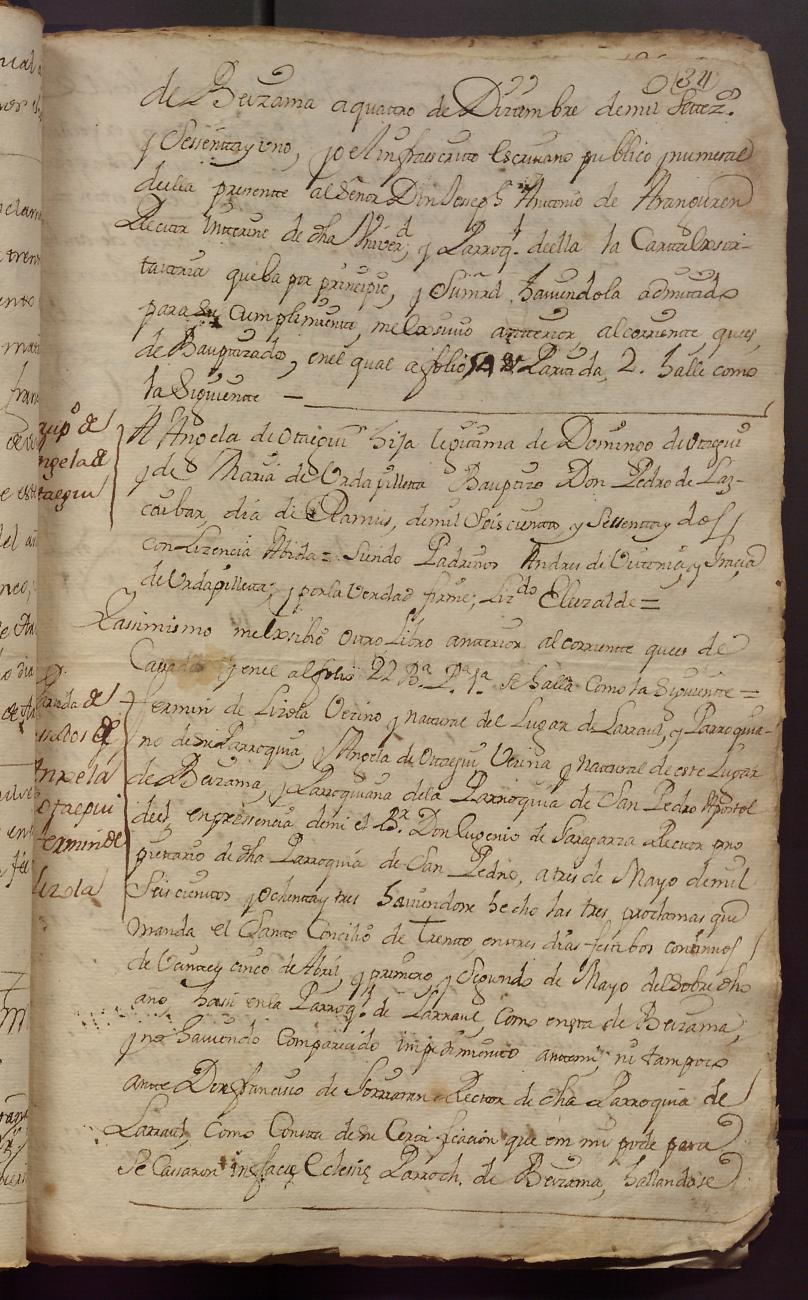 (34
de Beizama a quatro de Diziembre de mil Settez.^s
y Sessenta y uno, yo el infraescrito Escrivano publico y numeral
de ella presente al Señor Don Joseph Antonio de Aranguren
Rector Interino de dha Univer^d, y Parroq.^l de ella la Carta Exsor-
tatoria que ba por principio, y Su mrd haviendola admitido
para su Cumplimiento, me exsivio anterior al corriente, que es,
de Bauptizados, en el qual a folio Partida, 2. halle como
la Siguiente —
Bap^o de
Angela de
Otaegui
A Angela de Otaegui hija lexitima de Domingo de Otaegui
y de Maria de Urdapilleta Bauptizo Don Pedro de Laz-
coibar, dia de Ramus, de mil Seis cientos y Sessenta y dos
con Lizencia Abida = Siendo Padrinos Andres de Vitoria, y Gracia
de Urdapilleta; y por la Verdad firme; Liz^do Elizalde =
Y assimismo me exsibio otro Libro anterior al corriente que es de
Casados y en el al folio 22 B^a P^a 1^a se halla como la Siguiente =
de
Angela
Otaegui
Fermin de
Lizola
Fermin de Lizola Vezino y natural del Lugar de Larraul, y Parroquia-
no de su Parroquia, y Angela de Ottaegui Vezina y natural de este Lugar
de Beizama, y Parroquiana de la Parroquia de San Pedro Apostol
de el, en pressencia de mi el B.^r Don Eugenio de Garagarza Rector pro
pietario de dha Parroquia de San Pedro, a tres de Mayo de mil
Seiscientos y ochenta y tres haviendose hecho las tres proclamas que
manda el Santo Concilio de Trento, en tres dias festibos continuos
de Veinte y cinco de Abril, y primero, y Segundo de Mayo del sobre dho
año, hasi en la Parroq.^l de Larraul, como en esta de Beizama,
y no haviendo comparecido impedimento ante mi, ni tampoco
ante Don francisco de Rector de dha Parroquia de
Larraul, como Consta de su Certificacion que en mi pode para
Se Cassaron in facie Eclesie Parroch. de Beizama, hallandose